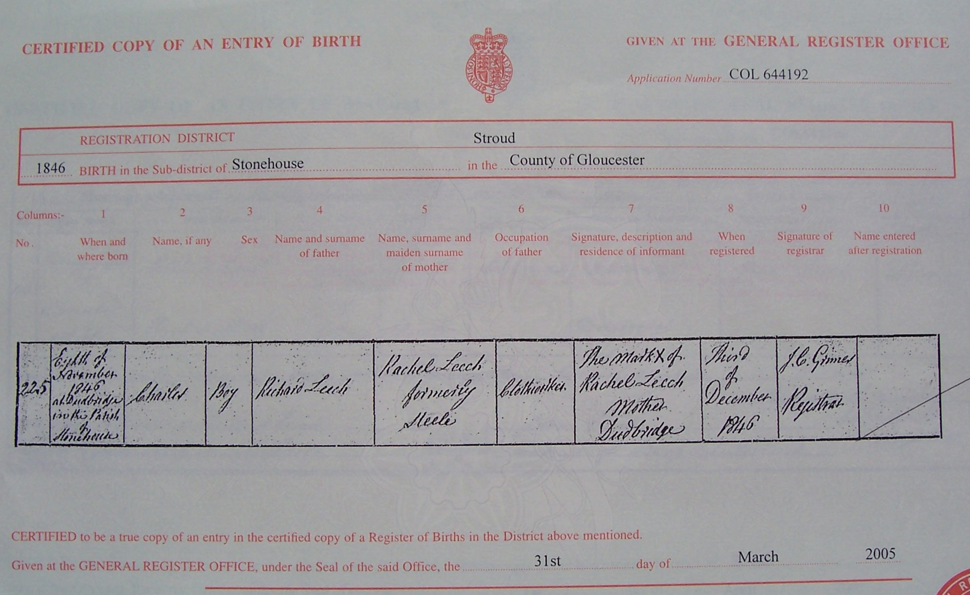 CERTIFIED COPY OF AN ENTRY OF BIRTH
GIVEN AT THE GENERAL REGISTER OFFICE
Application Number COL 644192
REGISTRATION DISTRICT Stroud
1846 BIRTH in the Sub-district of Stonehouse in the County of Gloucester
Columns:- 1 2 3 4 5 6 7 8 9 10
No. When and where born
Name, if any
Sex
Name and surname of father
Name, surname and maiden surname of mother
Occupation of father
Signature, description and residence of informant
When registered
Signature of registrar
Name entered after registration
225
Eighth of
November
1846
at Dudbridge
in the Parish
of
Stonehouse
Charles
Boy
Richard Leech
Rachel Leech
formerly
Steele
Clothworker
The Mark X of
Rachel Leech
Mother
Dudbridge
Third
of
December
1846
J.C. Grimes
Registrar
CERTIFIED to be a true copy of an entry in the certified copy of a Register of Births in the District above mentioned.
Given at the GENERAL REGISTER OFFICE, under the Seal of the said Office, the 31st day of March 2005